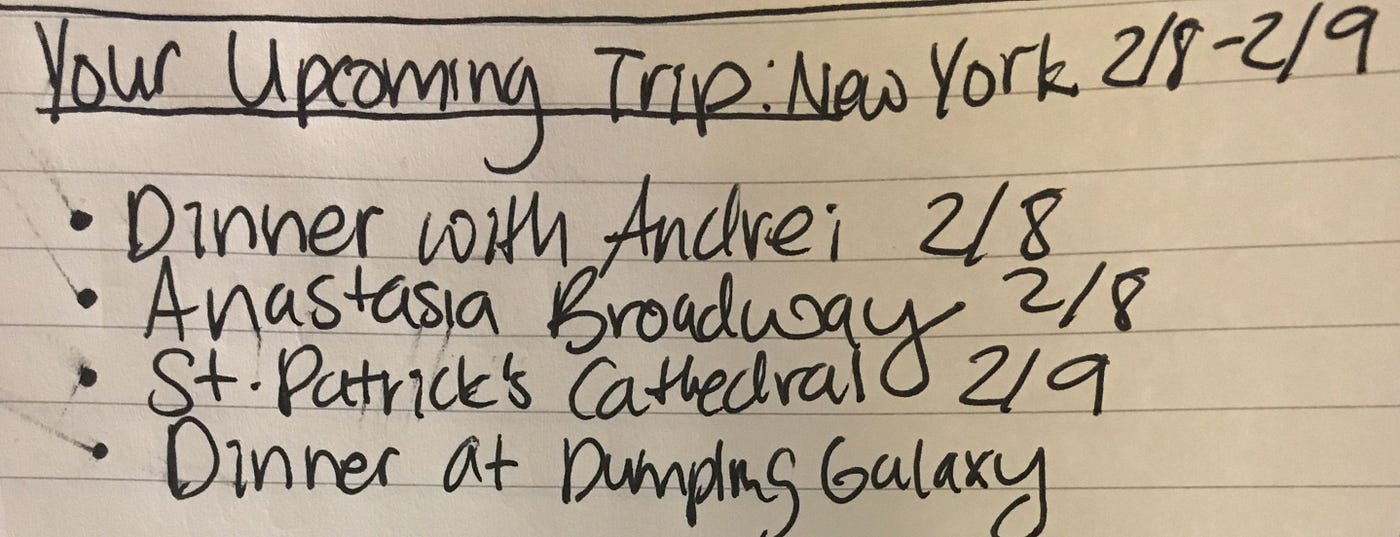 Your Upcoming Trip: New York 2/8-2/9
• Dinner with Andrei 2/8
• Anastasia Broadway 2/8
• St. Patrick's Cathedral 2/9
• Dinner at Dumpling Galaxy